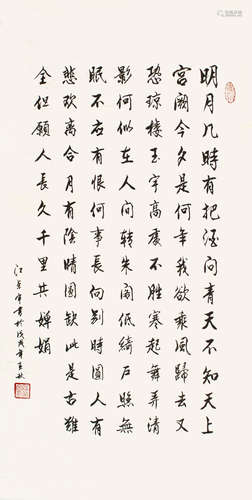 明月几時有把酒问青天不知天上
宫阙今夕是何年我欲乘風歸去又
恐琼樓玉宇高處不胜寒起舞弄清
影何似在人间转朱阁低绮户照無
眠不应有恨何事長向别時圆人有
悲欢離合月有陰晴圆缺此事古難
全但願人長久千里共婵娟
江 军书於戊戌年 秋